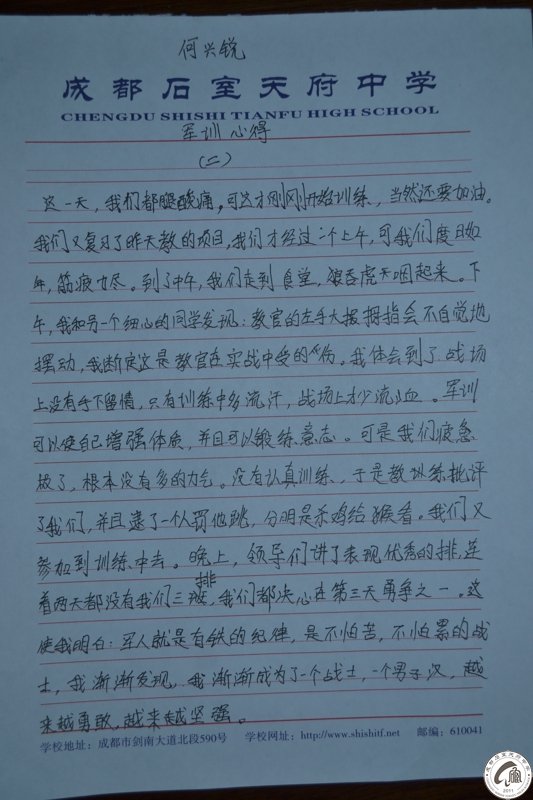 何兴锐
成都石室天府中学
CHENGDU SHISHI TIANFU HIGH SCHOOL
军训心得
(二)
这一天，我们都腿酸痛，可这才刚刚开始训练，当然还要加油。
我们又复习了昨天教的项目，我们才经过一个上午，可我们度日如
年，筋疲力尽。到了中午，我们走到食堂，狼吞虎咽起来。下
午，我和另一个细心的同学发现：教官的左手大拇指会不自觉地
摆动，我断定这是教官在实战中受的伤。我体会到了战场
上没有手下留情，只有训练中多流汗，战场上才少流血。军训
可以使自己增强体质，并且可以锻练意志。可是我们疲惫
极了，根本没有多的力气。没有认真训练，于是教练批评
了我们，并且逮了一个人罚他跳，分明是杀鸡给猴看。我们又
参加到训练中去。晚上，领导们讲了表现优秀的排，连
着两天都没有我们三排，我们都决心在第三天勇争之一。这
使我明白：军人就是有铁的纪律，是不怕苦，不怕累的战
士，我渐渐发现，我渐渐成为了一个战士，一个男子汉，越
来越勇敢，越来越坚强。
学校地址：成都市剑南大道北段590号 学校网址：http://www.shishitf.net 邮编：610041
2011